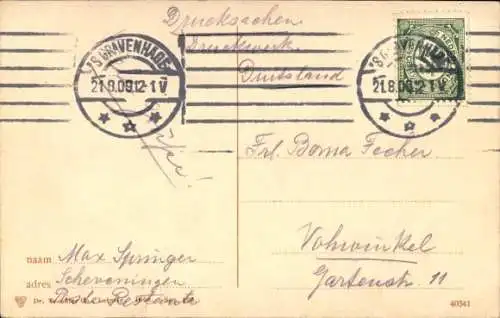 Drucksachen
Drukwerk
Duitsland
'S GRAVENHAGE
21.8.09.12-1 V
'S GRAVENHAGE
21.8.09.12-1 V
Frl. Boma Focher
Vohwinkel
Gartenstr. 11
naam Max Springer
adres Scheveningen
Poste Restante
40541